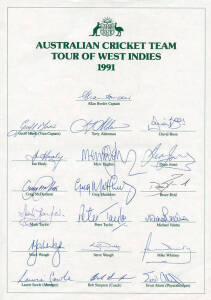 AUSTRALIAN CRICKET TEAM
TOUR OF WEST INDIES
1991
Allan Border Captain
Geoff Marsh (Vice-Captain) Terry Alderman David Boon
Ian Healy Merv Hughes Dean Jones
Craig McDermott Greg Matthews Bruce Reid
Mark Taylor Peter Taylor Michael Veletta
Mark Waugh Steve Waugh Mike Whitney
Laurie Sawle (Manager) Bob Simpson (Coach) Errol Alcott (Physiotherapist)